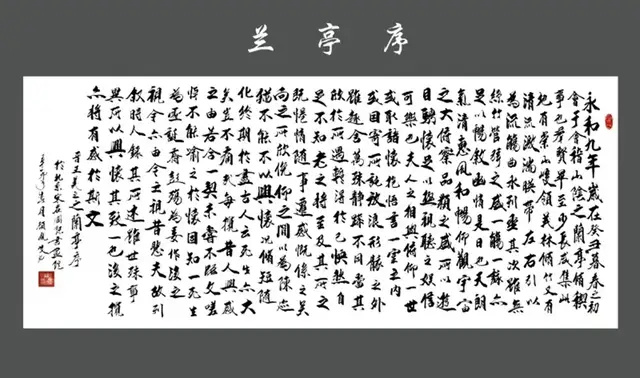 兰亭序
永和九年歲在癸丑暮春之初
會于會稽山陰之蘭亭脩禊
事也羣賢畢至少長咸集此
地有崇山峻領茂林脩竹又有
清流激湍映帶左右引以
為流觴曲水列坐其次雖無
絲竹管弦之盛一觴一詠亦
足以暢敘幽情是日也天朗
氣清惠風和暢仰觀宇宙
之大俯察品類之盛所以遊
目騁懷足以極視聽之娛信
可樂也夫人之相與俯仰一世
或取諸懷抱悟言一室之內
或因寄所託放浪形骸之外
雖趣舍萬殊靜躁不同當其
欣於所遇暫得於己快然自
足不知老之將至及其所之
既惓情隨事遷感慨係之矣
向之所欣俛仰之間以為陳迹
猶不能不以興懷況脩短隨
化終期於盡古人云死生亦大
矣豈不痛哉每攬昔人興感
之由若合一契未嘗不臨文嗟
悼不能喻之於懷固知一死生
為虛誕齊彭殤為妄作後之
視今亦由今之視昔悲夫故列
敘時人錄其所述雖世殊事
異所以興懷其致一也後之攬
亦將有感於斯文
晉王羲之蘭亭序